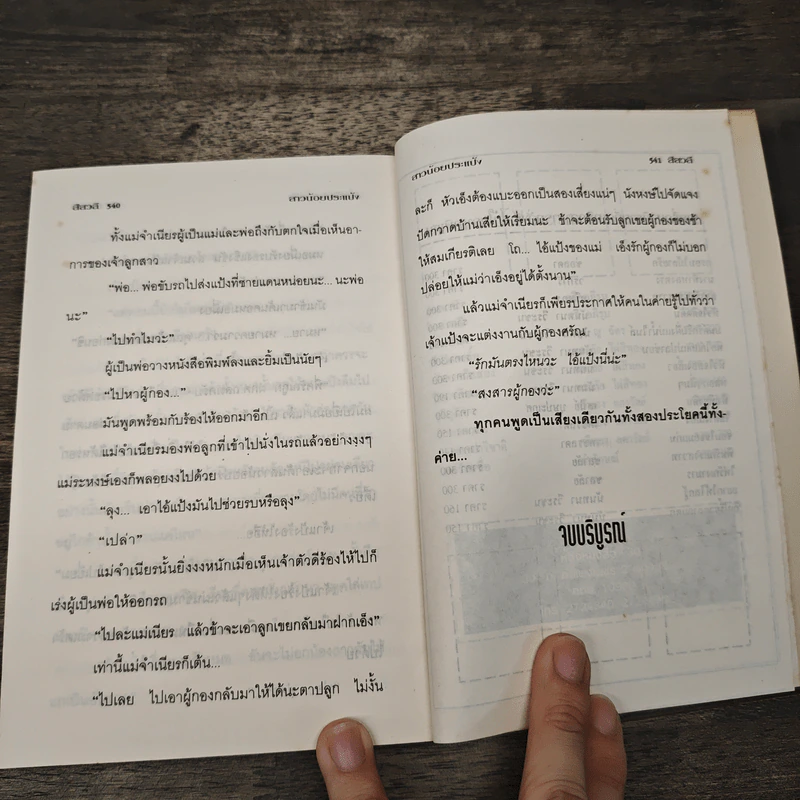 สีสวลี 540
สาวน้อยประแป้ง
ทั้งแม่จำเนียรผู้เป็นแม่และพ่อถึงกับตกใจเมื่อเห็นอา-
การของเจ้าลูกสาว
“พ่อ... พ่อขับรถไปส่งแป้งที่ชายแดนหน่อยนะ... นะพ่อ
นะ”
“ไปทำไมวะ”
ผู้เป็นพ่อวางหนังสือพิมพ์ลงและยิ้มเป็นนัยๆ
“ไปหาผู้กอง...”
มันพูดพร้อมกับร้องไห้ออกมาอีก
แม่จำเนียรมองพ่อลูกที่เข้าไปนั่งในรถแล้วอย่างงุงๆ
แม่ระหงษ์เองก็พลอยงงไปด้วย
“ลุง... เอาไอ้แป้งมันไปช่วยรบหรือลุง”
“เปล่า”
แม่จำเนียรนั้นยิ่งงงหนักเมื่อเห็นเจ้าตัวดีร้องไห้ไปก็
เร่งผู้เป็นพ่อให้ออกรถ
“ไปละแม่เนียร แล้วข้าจะเอาลูกเขยกลับมาฝากเอ็ง”
เท่านี้แม่จำเนียรก็เต้น...
“ไปเลย ไปเอาผู้กองกลับมาให้ได้นะตาปลูก ไม่งั้น
สาวน้อยประแป้ง
541 สีสวลี
ละก็ หัวเอ็งต้องแบะออกเป็นสองเสี่ยงแน่ๆ นังหงษ์ไปจัดแจง
ปัดกวาดบ้านเสียให้เรี่ยมนะ ข้าจะต้อนรับลูกเขยผู้กองของข้า
ให้สมเกียรติเลย โถ... ไอ้แป้งของแม่ เอ็งรักผู้กองก็ไม่บอก
ปล่อยให้แม่ว่าเอ็งอยู่ได้ตั้งนาน”
แล้วแม่จำเนียรก็เพียรประกาศให้คนในค่ายรู้ไปทั่วว่า
เจ้าแป้งจะแต่งงานกับผู้กองศรัณ
“รักมันตรงไหนวะ ไอ้แป้งนี่น่ะ”
“สงสารผู้กองว่ะ”
ทุกคนพูดเป็นเสียงเดียวกันทั้งสองประโยคนี้ทั้ง-
ค่าย...
จบบริบูรณ์